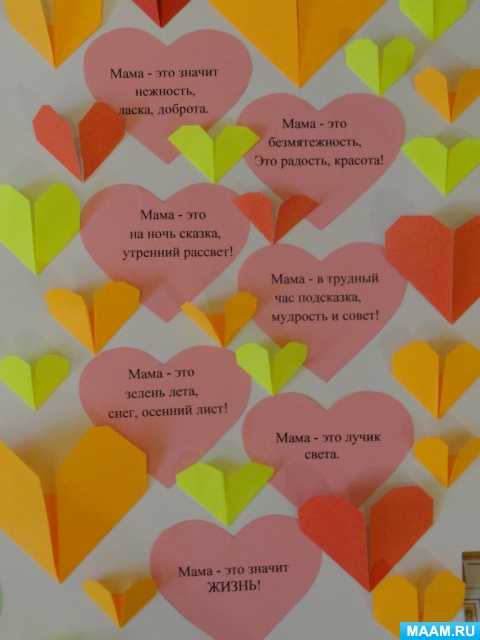 Мама - это значит
нежность,
ласка, доброта.
Мама - это
безмятежность,
Это радость, красота!
Мама - это
на ночь сказка,
утренний рассвет!
Мама - в трудный
час подсказка,
мудрость и совет!
Мама - это
зелень лета,
снег, осенний лист!
Мама - это лучик
света.
Мама - это значит
ЖИЗНЬ!
MAAM.RU